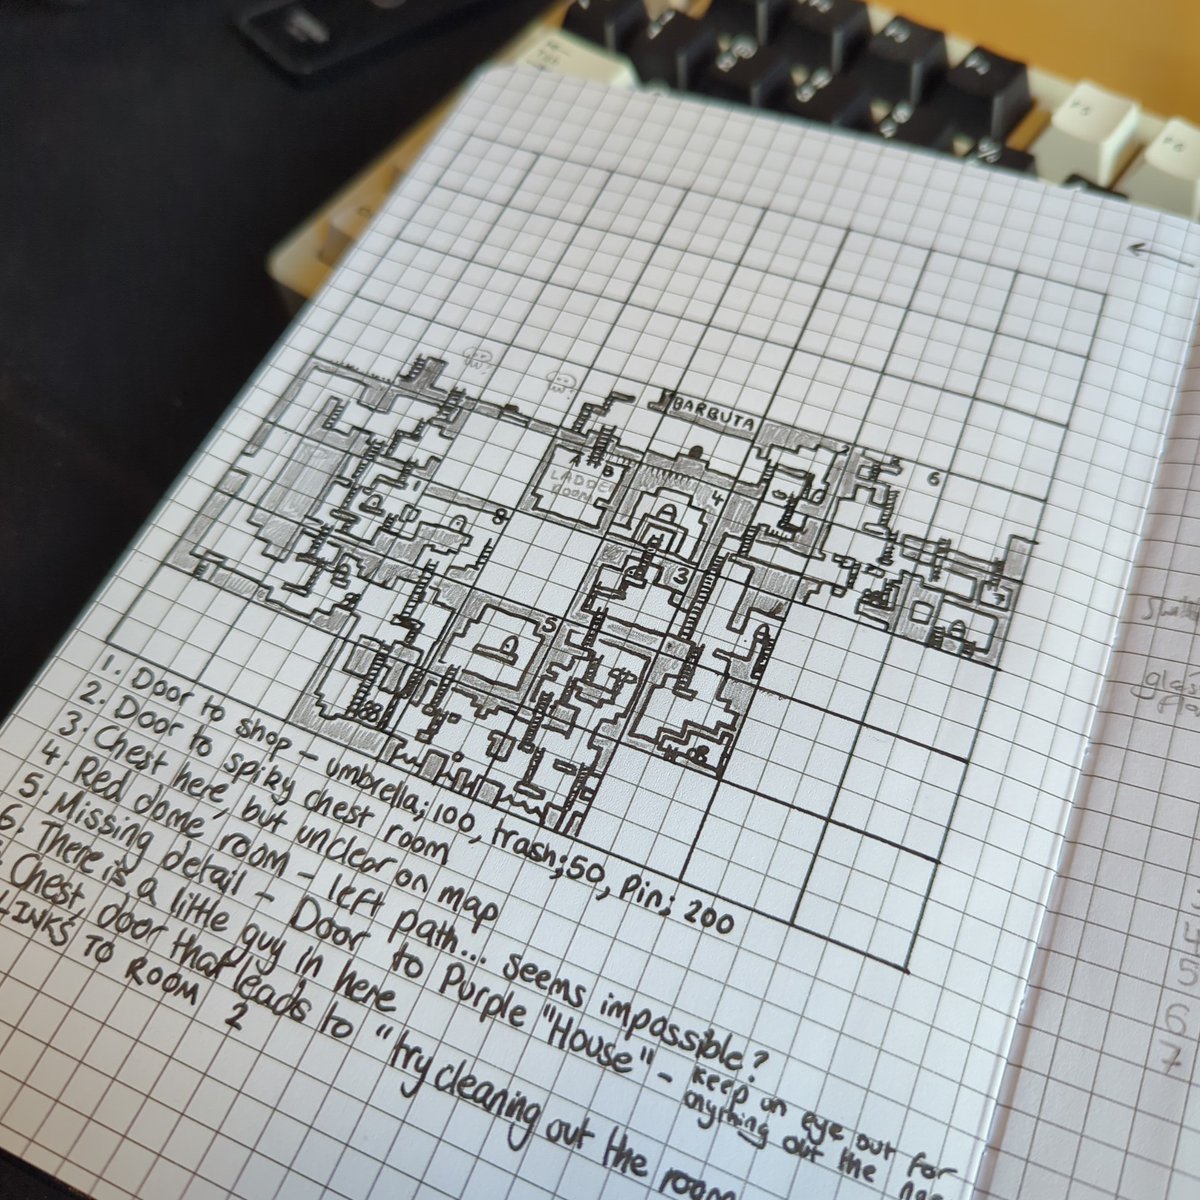 BARBUTA
6
LADDER
ROOM
4
1
8
3
7
5
1. Door to shop - umbrella; 100, trash; 50, Pin; 200
2. Door to spiky chest room
3. Chest here, but unclear on map
4. Red dome room - left path... seems impossible?
5. Missing detail - Door to Purple "House" - keep an eye out for
anything out the
6. There is a little guy in here
Chest, door that leads to "try cleaning out the room
LINKS TO ROOM 2
5
6
7